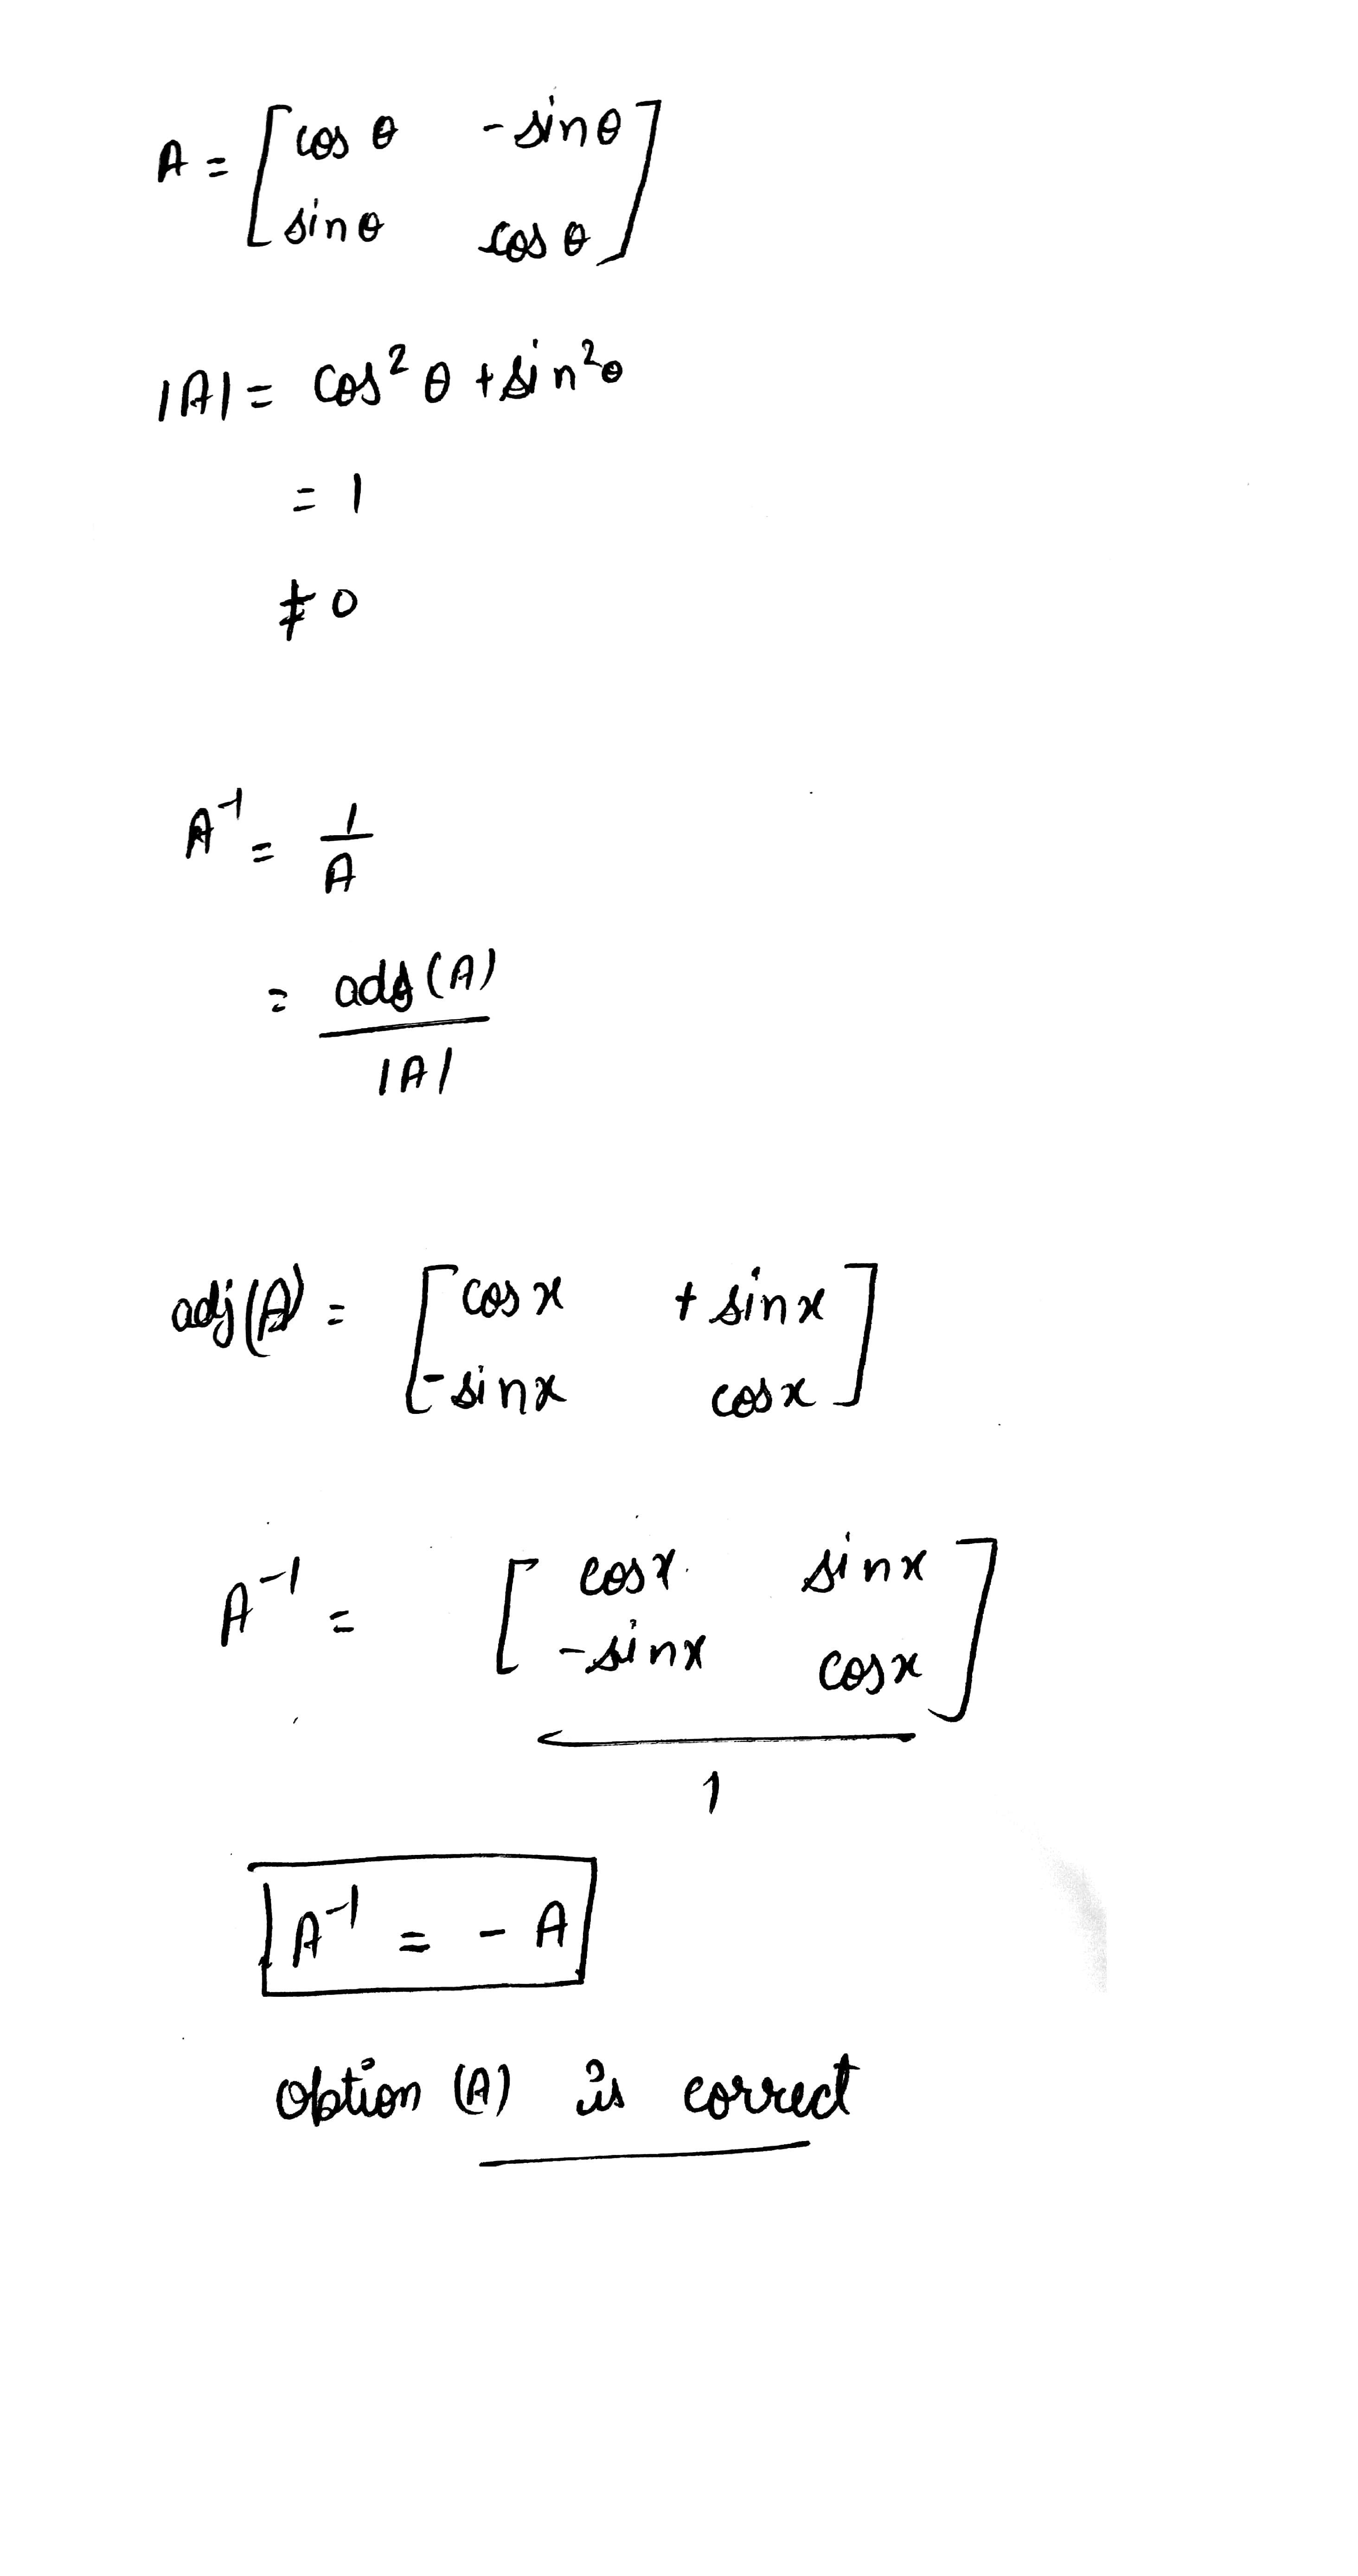 A = [ cos θ   - sin θ
sin θ   cos θ ]
|A| = cos² θ + sin² θ
= 1
≠ 0
A⁻¹ = 1/A
= adj (A) / |A|
adj (A) = [ cos x   + sin x
- sin x   cos x ]
A⁻¹ = [ cos x   sin x
- sin x   cos x ]
1
A⁻¹ = - A
option (A) is correct